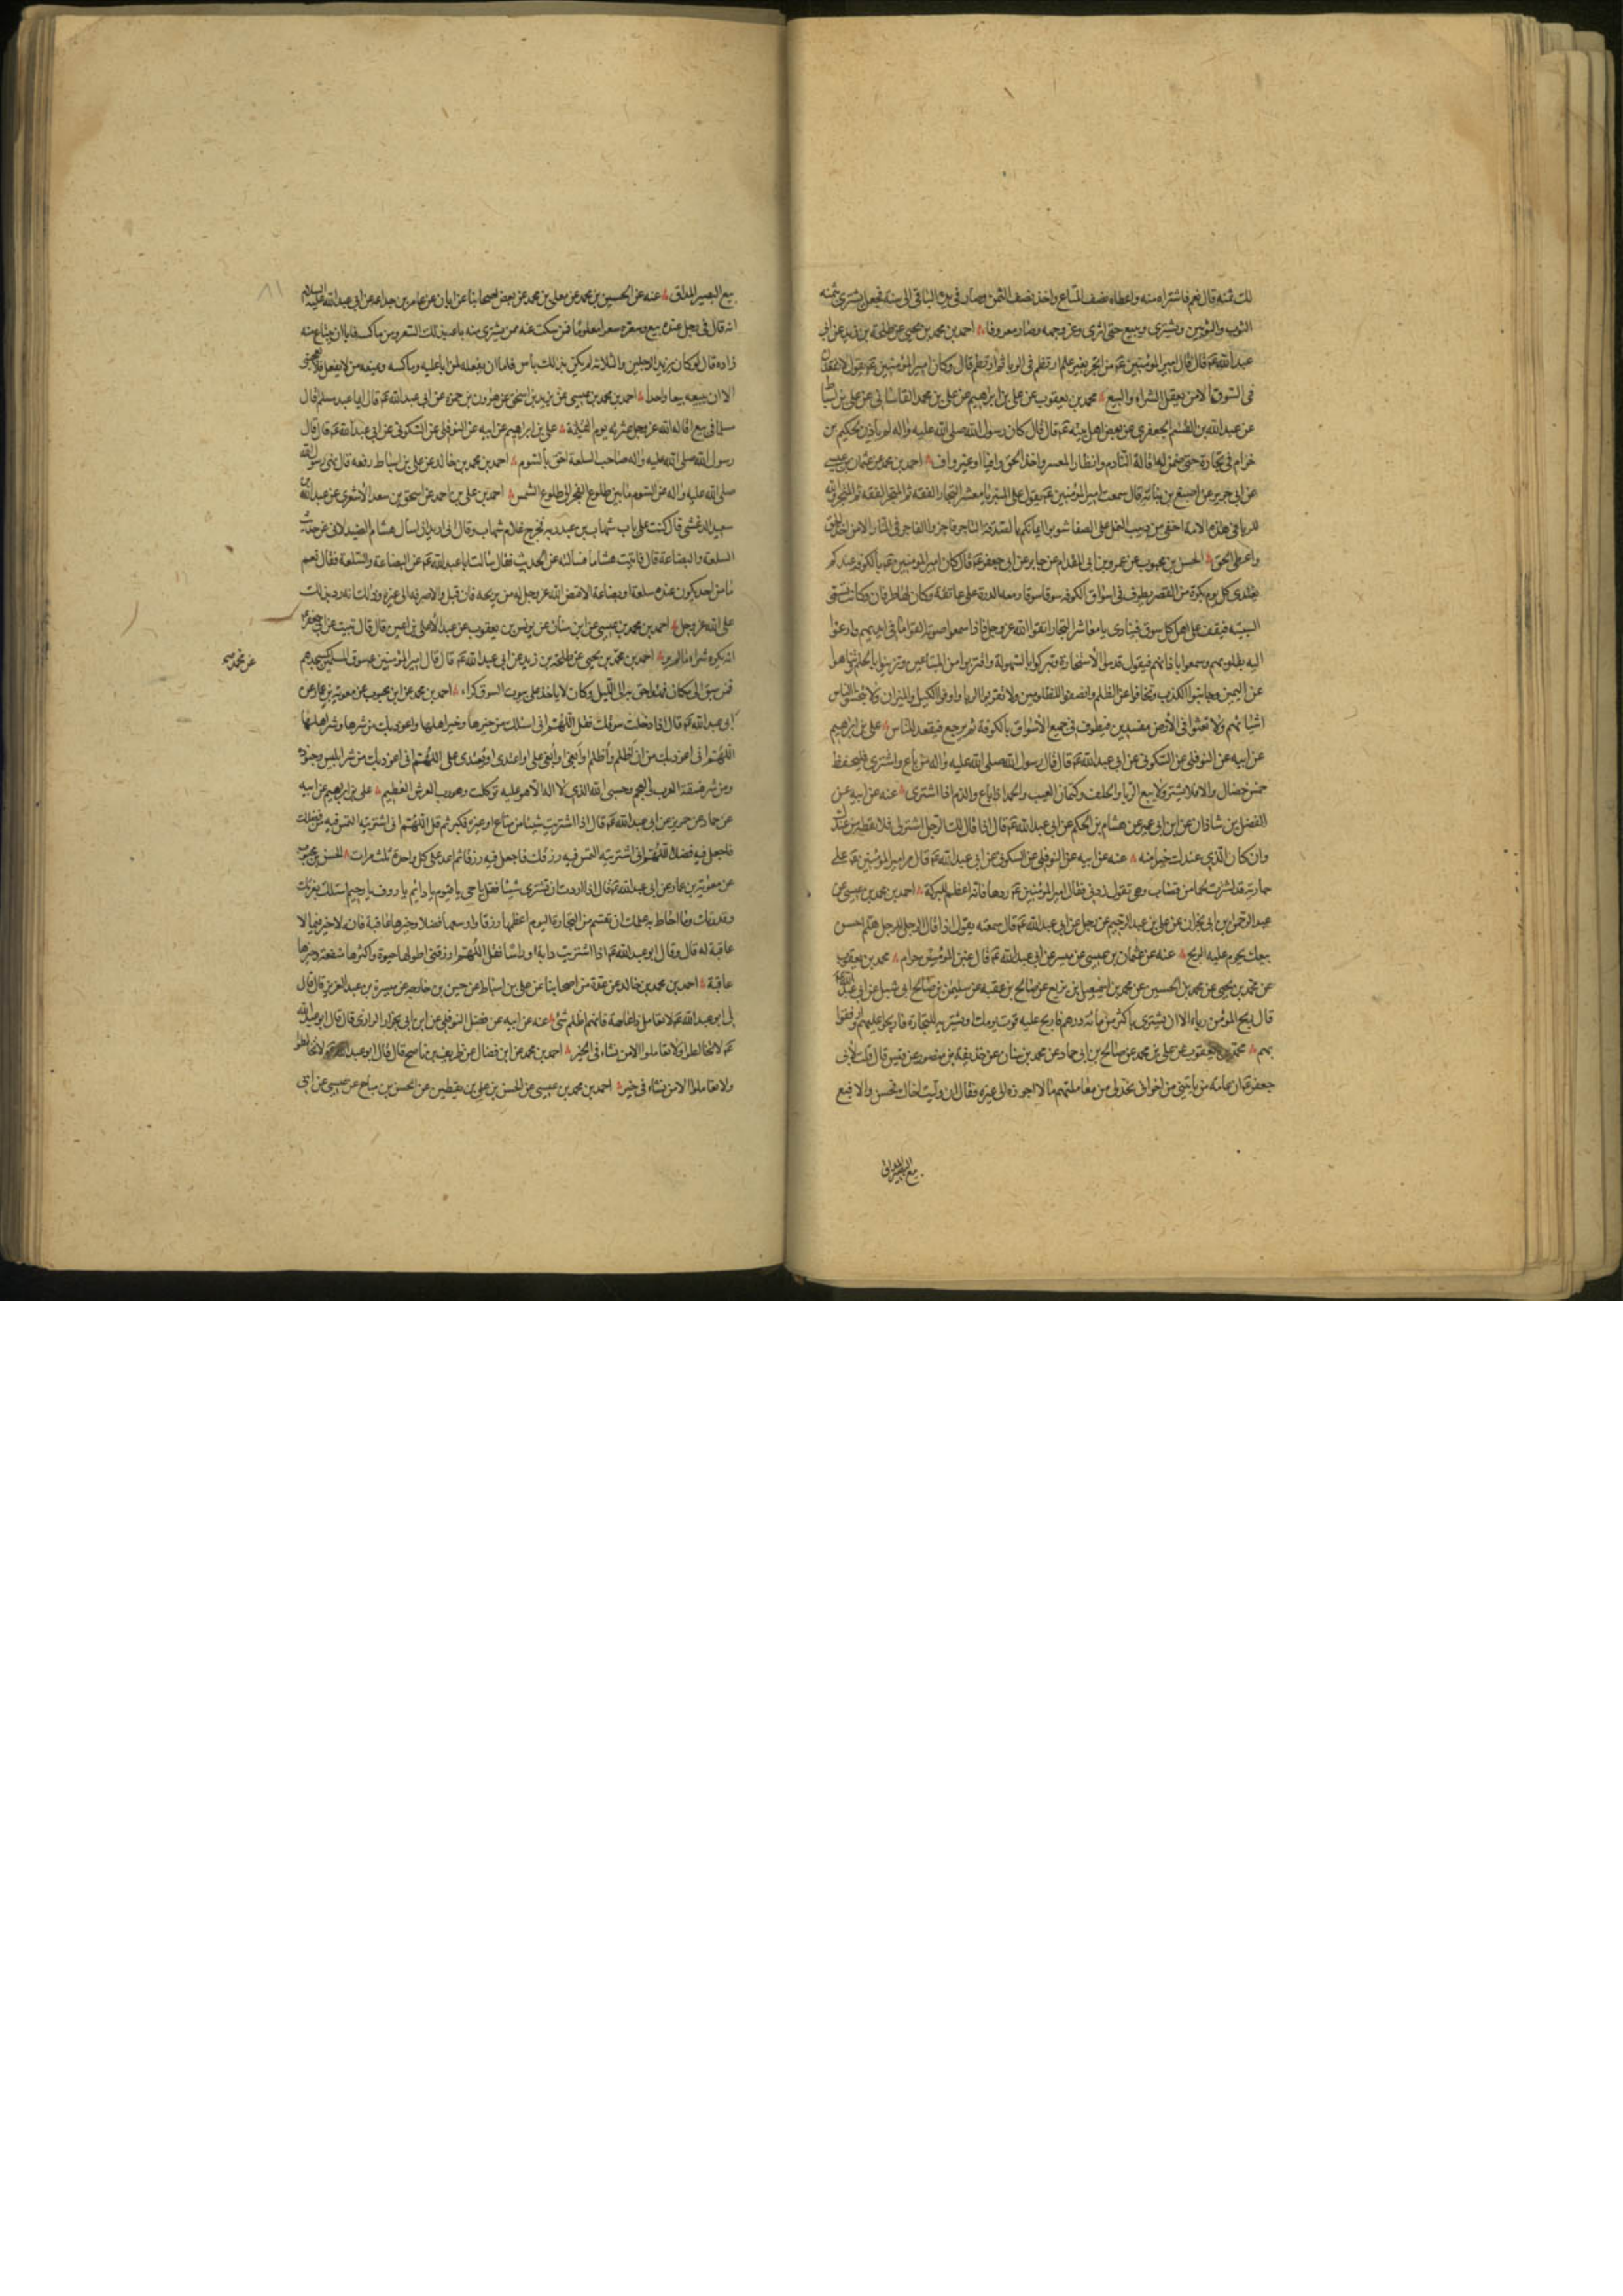 لك ثمنه قال نعم فاشتراه منه واعطاه نصف المتاع واخذ نصف الثمن وصار في يده الباقي الى سنة فجعل يشتري بثمنه
الثوب والثوبين ويشتري ويبيع حتى اثرى وعز وجهه وصار معروفا احمد بن محمد بن يحيى عن طلحة بن زيد عن ابي
عبد الله عم قال قال امير المؤمنين عم من اتجر بغير علم ارتطم في الربا ثم ارتطم قال وكان امير المؤمنين عم يقول لا يقعدن
في السوق الا من يعقل الشراء والبيع محمد بن يعقوب عن علي بن ابراهيم عن علي بن محمد القاساني عن علي بن اسباط
عن عبد الله بن القسم الجعفري عن بعض اهل بيته عم قال قال كان رسول الله صلى الله عليه واله لم ياذن لحكيم بن
حزام في تجارة حتى ضمن له اقالة النادم وانظار المعسر واخذ الحق وافيا او غير واف احمد بن محمد عن عثمان بن عيسى
عن ابي جرير عن اصبغ بن نباته قال سمعت امير المؤمنين عم يقول على المنبر يا معشر التجار الفقه ثم المتجر الفقه ثم المتجر والله
للربا في هذه الامة اخفى من دبيب النمل على الصفا شوبوا ايمانكم بالصدقة التاجر فاجر والفاجر في النار الا من اخذ الحق
واعطى الحق الحسن بن محبوب عن عمرو بن ابي المقدام عن جابر عن ابي جعفر عم قال كان امير المؤمنين عم بالكوفه عندكم
يغتدي كل يوم بكرة من القصر يطوف في اسواق الكوفه سوقا سوقا ومعه الدرة على عاتقه وكان لها طرفان وكانت تسمى
السبيبه فيقف على اهل كل سوق فينادى يا معاشر التجار اتقوا الله عز وجل فاذا سمعوا صوته القوا ما في ايديهم وارعوا
اليه بقلوبهم وسمعوا باذانهم فيقول قدموا الاستخارة وتبركوا بالسهولة واقتربوا من المبتاعين وتزينوا بالحلم وتناهوا
عن اليمين وجانبوا الكذب وتخافوا عن الظلم وانصفوا المظلومين ولا تقربوا الربا واوفوا الكيل والميزان ولا تبخسوا الناس
اشيائهم ولا تعثوا في الارض مفسدين فيطوف في جميع الاسواق بالكوفة ثم يرجع فيقعد للناس علي بن ابراهيم
عن ابيه عن النوفلي عن السكوني عن ابي عبد الله عم قال قال رسول الله صلى الله عليه واله من باع واشترى فليحفظ
خمس خصال والا فلا يشتر ولا يبيع الربا والحلف وكتمان العيب والحمد اذا باع والذم اذا اشترى عنه عن ابيه عن
الفضل بن شاذان عن ابن ابي عمير عن هشام بن الحكم عن ابي عبد الله عم قال اذا قال لك الرجل اشتر لي فلا تعطه من عندك
وان كان الذي عندك خيرا منه عنه عن ابيه عن النوفلي عن السكوني عن ابي عبد الله عم قال مر امير المؤمنين عم على
جارية قد اشترت لحما من قصاب وهي تقول زدني فقال امير المؤمنين عم زدها فانه اعظم للبركة احمد بن محمد بن عيسى عن
عبد الرحمن بن ابي نجران عن علي بن عبد الرحيم عن رجل عن ابي عبد الله عم قال سمعته يقول اذا قال الرجل للرجل هلم احسن
بيعك يحرم عليه الربح عنه عن عثمان بن عيسى عن ميسر عن ابي عبد الله عم قال غبن المؤمن حرام محمد بن يعقوب
عن محمد بن يحيى عن محمد بن الحسين عن محمد بن اسمعيل بن بزيع عن صالح بن عقبه عن سليمن بن صالح ابي شبل عن ابي عبد الله
قال ربح المؤمن رباء الا ان يشتري باكثر من مائة درهم فاربح عليه قوت يومك او يشتريه للتجارة فاربحوا عليهم وارفقوا
بهم محمد بن يعقوب عن علي بن محمد عن صالح بن ابي حماد عن محمد بن سنان عن حذيفة بن منصور عن قيس قال قلت لابي
جعفر عم ان عامة من ياتيني من اخواني فحد لي من معاملتهم ما لا اجوزه الى غيره فقال ان وليت اخاك فحسن والا فبع
بيع البصير المداق
بيع البصير المداق عنه عن الحسين بن محمد عن معلى بن محمد عن بعض اصحابنا عن ابان عن عامر بن جذاعه عن ابي عبد الله عليه السلام
انه قال في رجل عنده بيع وسعره سعرا معلوما فمن سكت عنه ممن يشتري منه باعه بذلك السعر ومن ماكسه فابا ان يبتاع منه
زاده قال لو كان يزيد الرجلين والثلاثة لم يكن بذلك باس فاما ان يفعله لمن ابا عليه وماكسه ويمنعه من لا يفعل فلا يعجبني
الا ان يبيعه بيعا واحدا احمد بن محمد بن عيسى عن يزيد بن اسحق عن هرون بن حمزة عن ابي عبد الله عم قال ايما عبد مسلم اقال
مسلما في بيع اقاله الله عز وجل عثرته يوم القيامة علي بن ابراهيم عن ابيه عن النوفلي عن السكوني عن ابي عبد الله عم قال قال
رسول الله صلى الله عليه واله صاحب السلعة احق بالسوم احمد بن محمد بن خالد عن علي بن اسباط رفعه قال نهى رسول الله
صلى الله عليه واله عن السوم ما بين طلوع الفجر الى طلوع الشمس احمد بن علي بن احمد عن اسحق بن سعد الاشعري عن عبد الله بن
سعيد الدغشي قال كنت على باب شهاب بن عبد ربه فخرج غلام شهاب وقال اني اريد ان اسأل هشام الصيدلاني عن حديث
السلعة والبضاعة قال فاتيت هشاما فسألته عن الحديث فقال سالت ابا عبد الله عم عن البضاعة والسلعة فقال نعم
ما من احد يكون عنده سلعة او بضاعة الا قيض الله عز وجل له من يربحه فان قبل والا صرفه الى غيره وذلك انه رد بذلك
على الله عز وجل احمد بن محمد بن عيسى عن ابن سنان عن يونس بن يعقوب عن عبد الاعلى بن اعين قال قال نبئت عن ابي جعفر عم
انه يكره شراء ما لم يره احمد بن محمد بن يحيى عن طلحة بن زيد عن ابي عبد الله عم قال قال امير المؤمنين عم سوق المسلمين كمسجدهم
عن محمد
فمن سبق الى مكان فهو احق به الى الليل وكان لا ياخذ على بيوت السوق كراء احمد بن محمد عن ابن محبوب عن معوية بن عمار عن
ابي عبد الله عم قال اذا دخلت سوقك فقل اللهم اني اسئلك من خيرها وخير اهلها واعوذ بك من شرها وشر اهلها
اللهم اني اعوذ بك من ان اظلم او اظلم او ابغي او يبغى علي او اعتدي او يعتدى علي اللهم اني اعوذ بك من شر ابليس وجنوده
ومن شر فسقة العرب والعجم وحسبي الله الذي لا اله الا هو عليه توكلت وهو رب العرش العظيم علي بن ابراهيم عن ابيه
عن حماد عن حريز عن ابي عبد الله عم قال اذا اشتريت شيئا من متاع او غيره فكبر ثم قل اللهم اني اشتريته التمس فيه من فضلك
فاجعل فيه فضلا اللهم اني اشتريته التمس فيه رزقك فاجعل فيه رزقا ثم اعد على كل واحدة ثلث مرات الحسن بن محبوب
عن معوية بن عمار عن ابي عبد الله عم قال اذا اردت ان تشتري شيئا فقل يا حي يا قيوم يا دائم يا رؤف يا رحيم اسئلك بعزتك
وقدرتك وما احاط به علمك ان تقسم من التجارة اليوم اعظمها رزقا واوسعها فضلا وخيرها عاقبة فانه لا خير فيما لا
عاقبة له قال وقال ابو عبد الله عم اذا اشتريت دابة او راسا فقل اللهم ارزقني اطولها حيوة واكثرها منفعة وخيرها
عاقبة احمد بن محمد بن خالد عن عدة من اصحابنا عن علي بن اسباط عن حسين بن خارجه عن ميسرة بن عبد العزيز قال قال
لي ابو عبد الله عم لا تعامل ذا عاهة فانهم اظلم شئ عنه عن ابيه عن فضل النوفلي عن ابن ابي يحيى الرازي قال قال ابو عبد الله
عم لا تخالطوا ولا تعاملوا الا من نشاء في الخير احمد بن محمد عن ابن فضال عن ظريف بن ناصح قال قال ابو عبد الله عم لا تخالطوا
ولا تعاملوا الا من نشاء في خير احمد بن محمد بن عيسى عن الحسن بن علي بن يقطين عن الحسن بن مياح عن عيسى عن ابي